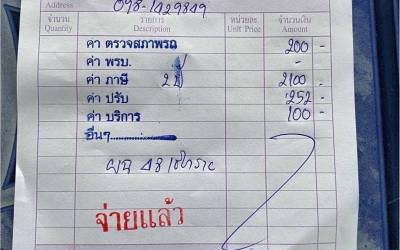 Address 098-1429849
จำนวน รายการ หน่วยละ จำนวนเงิน
Quantity Description Unit Price Amount
ค่า ตรวจสภาพรถ 200 -
ค่า พรบ. -
ค่า ภาษี 2100 -
ค่า ปรับ 252 -
ค่า บริการ 100 -
อื่นๆ..............
จ่ายแล้ว